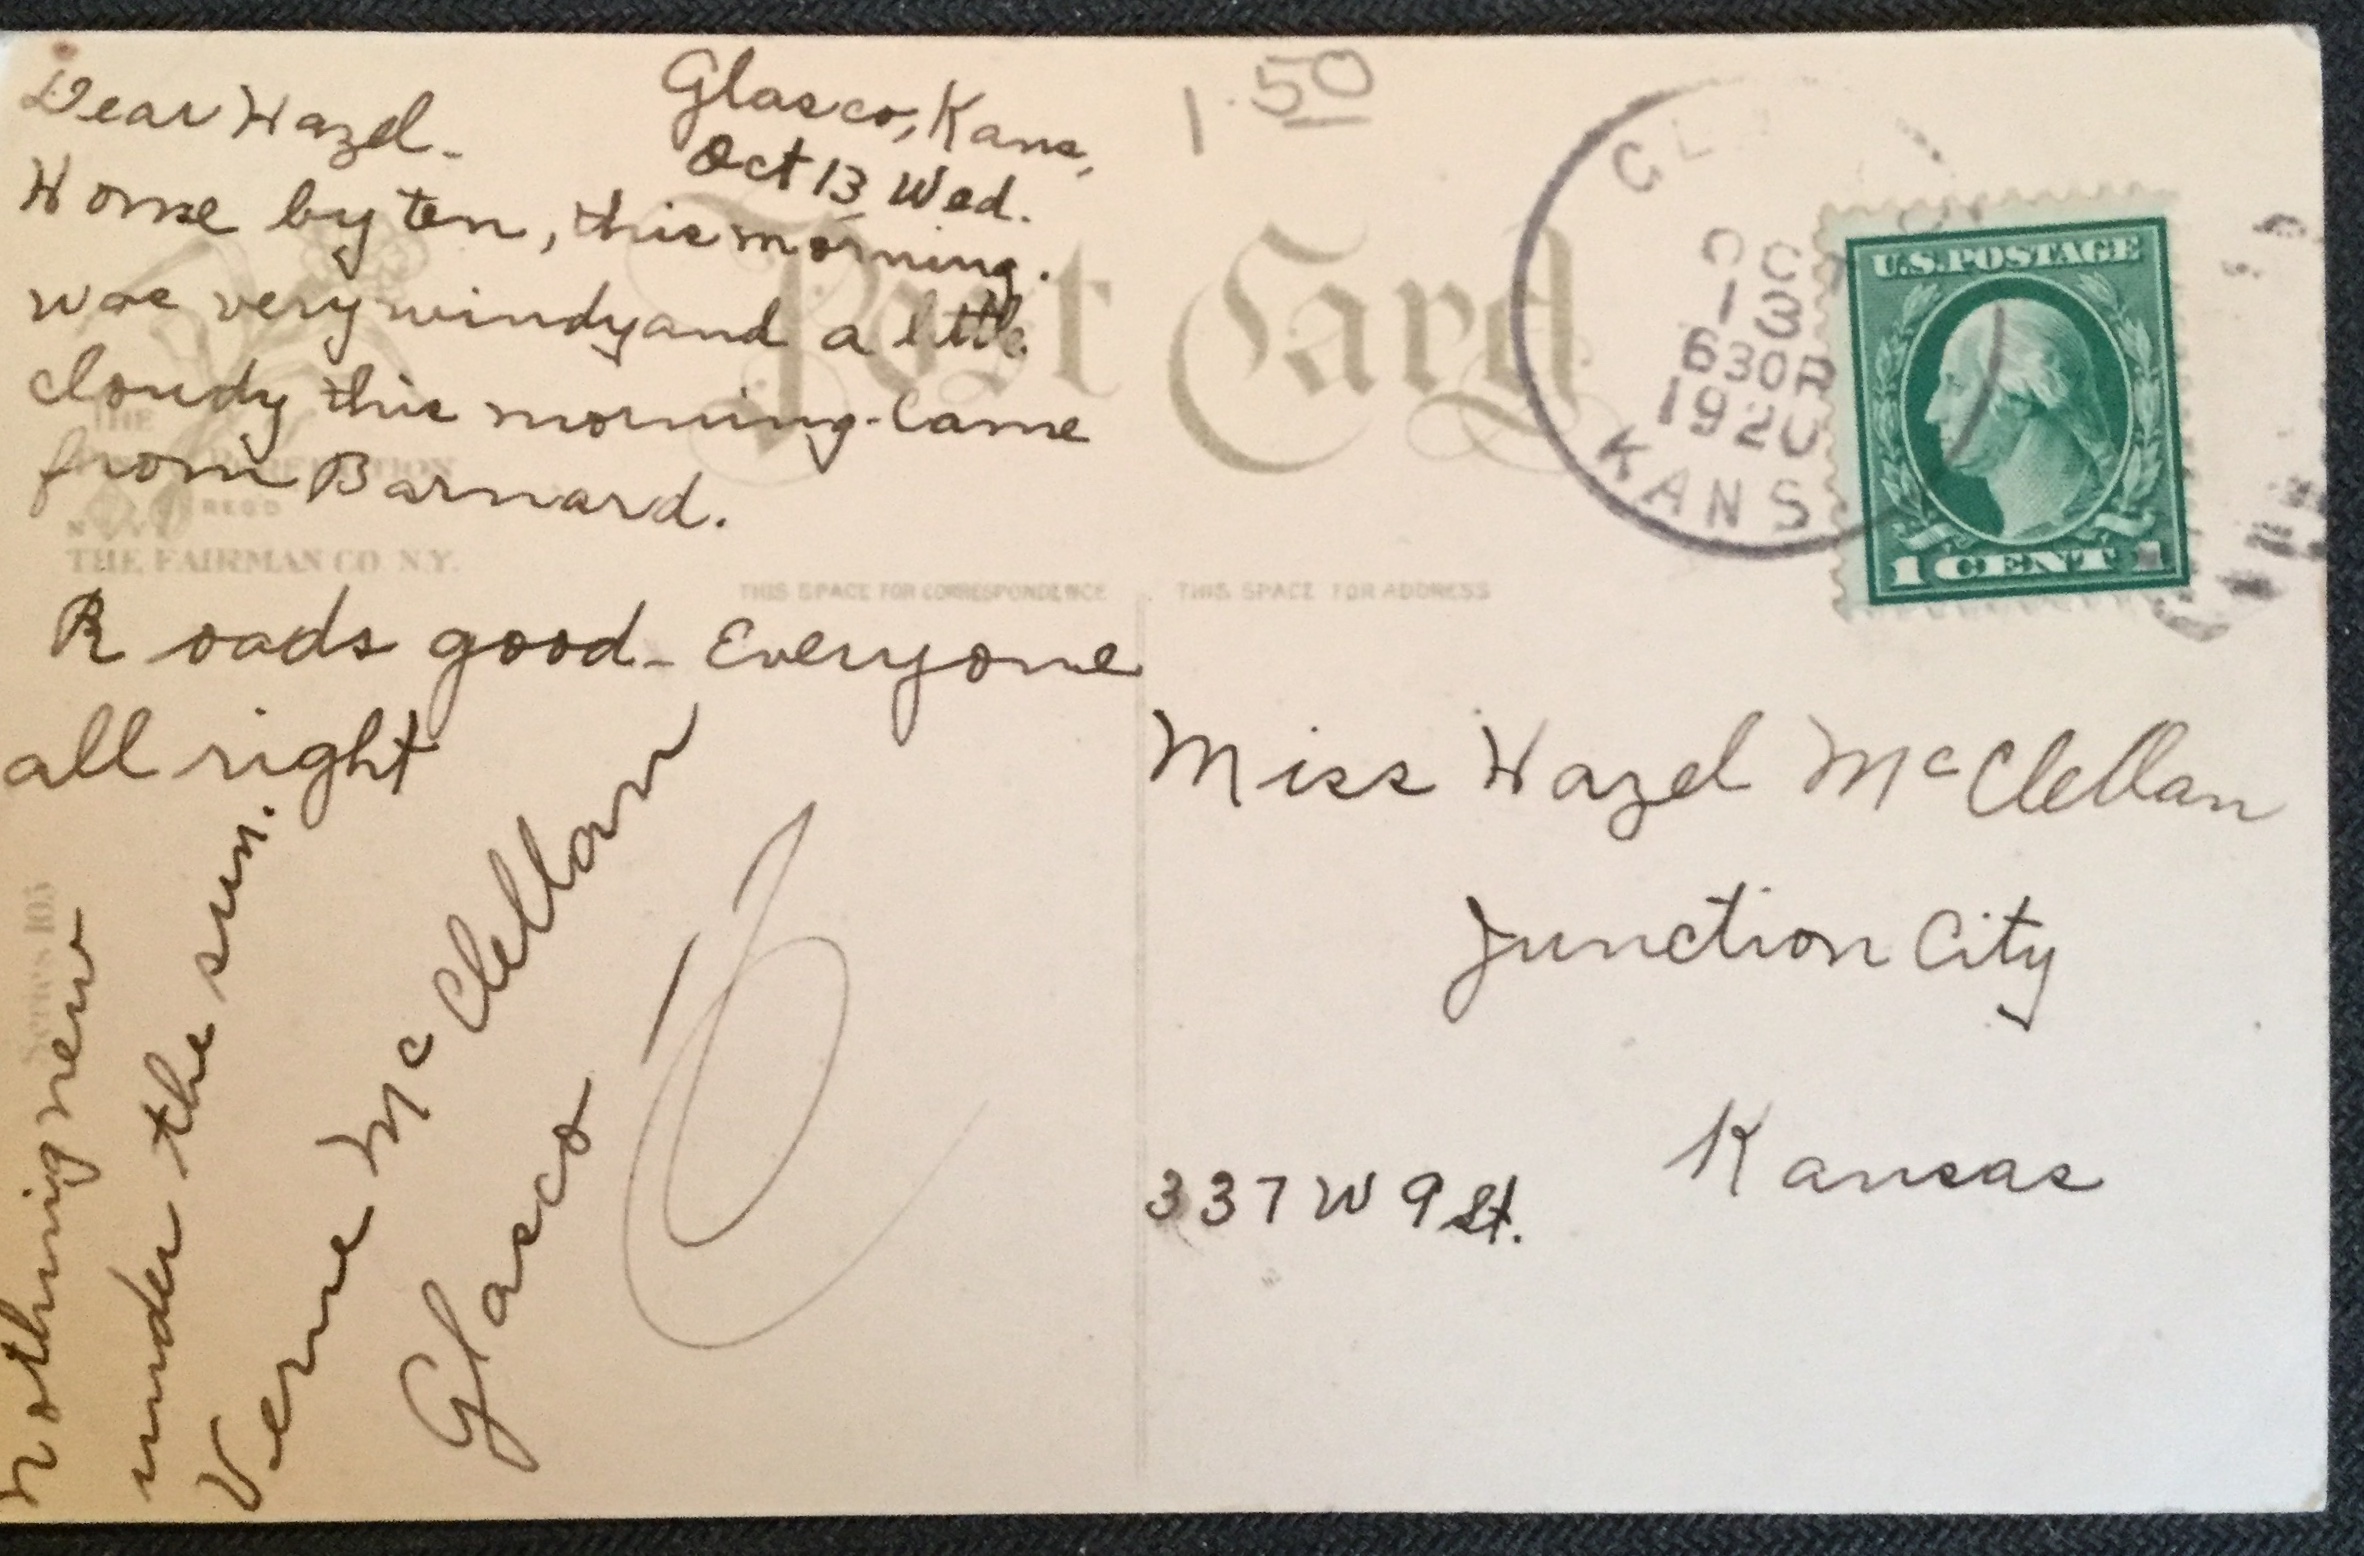 Dear Hazel-
Glasco, Kans,
Oct 13 Wed.
Home by ten, this morning.
was very windy and a little
cloudy this morning. Came
from Barnard.
Roads good- Everyone
all right
nothing new
under the sun.
Verne McClellan
Glasco
1.50
Post Card
THE
REG'D
N.Y.
THE FAIRMAN CO. N.Y.
Series 105
THIS SPACE FOR CORRESPONDENCE
THIS SPACE FOR ADDRESS
OCT
13
630P
1920
KANS
U.S. POSTAGE
1 CENT 1
Miss Hazel McClellan
Junction City
Kansas
337 W 9 St.